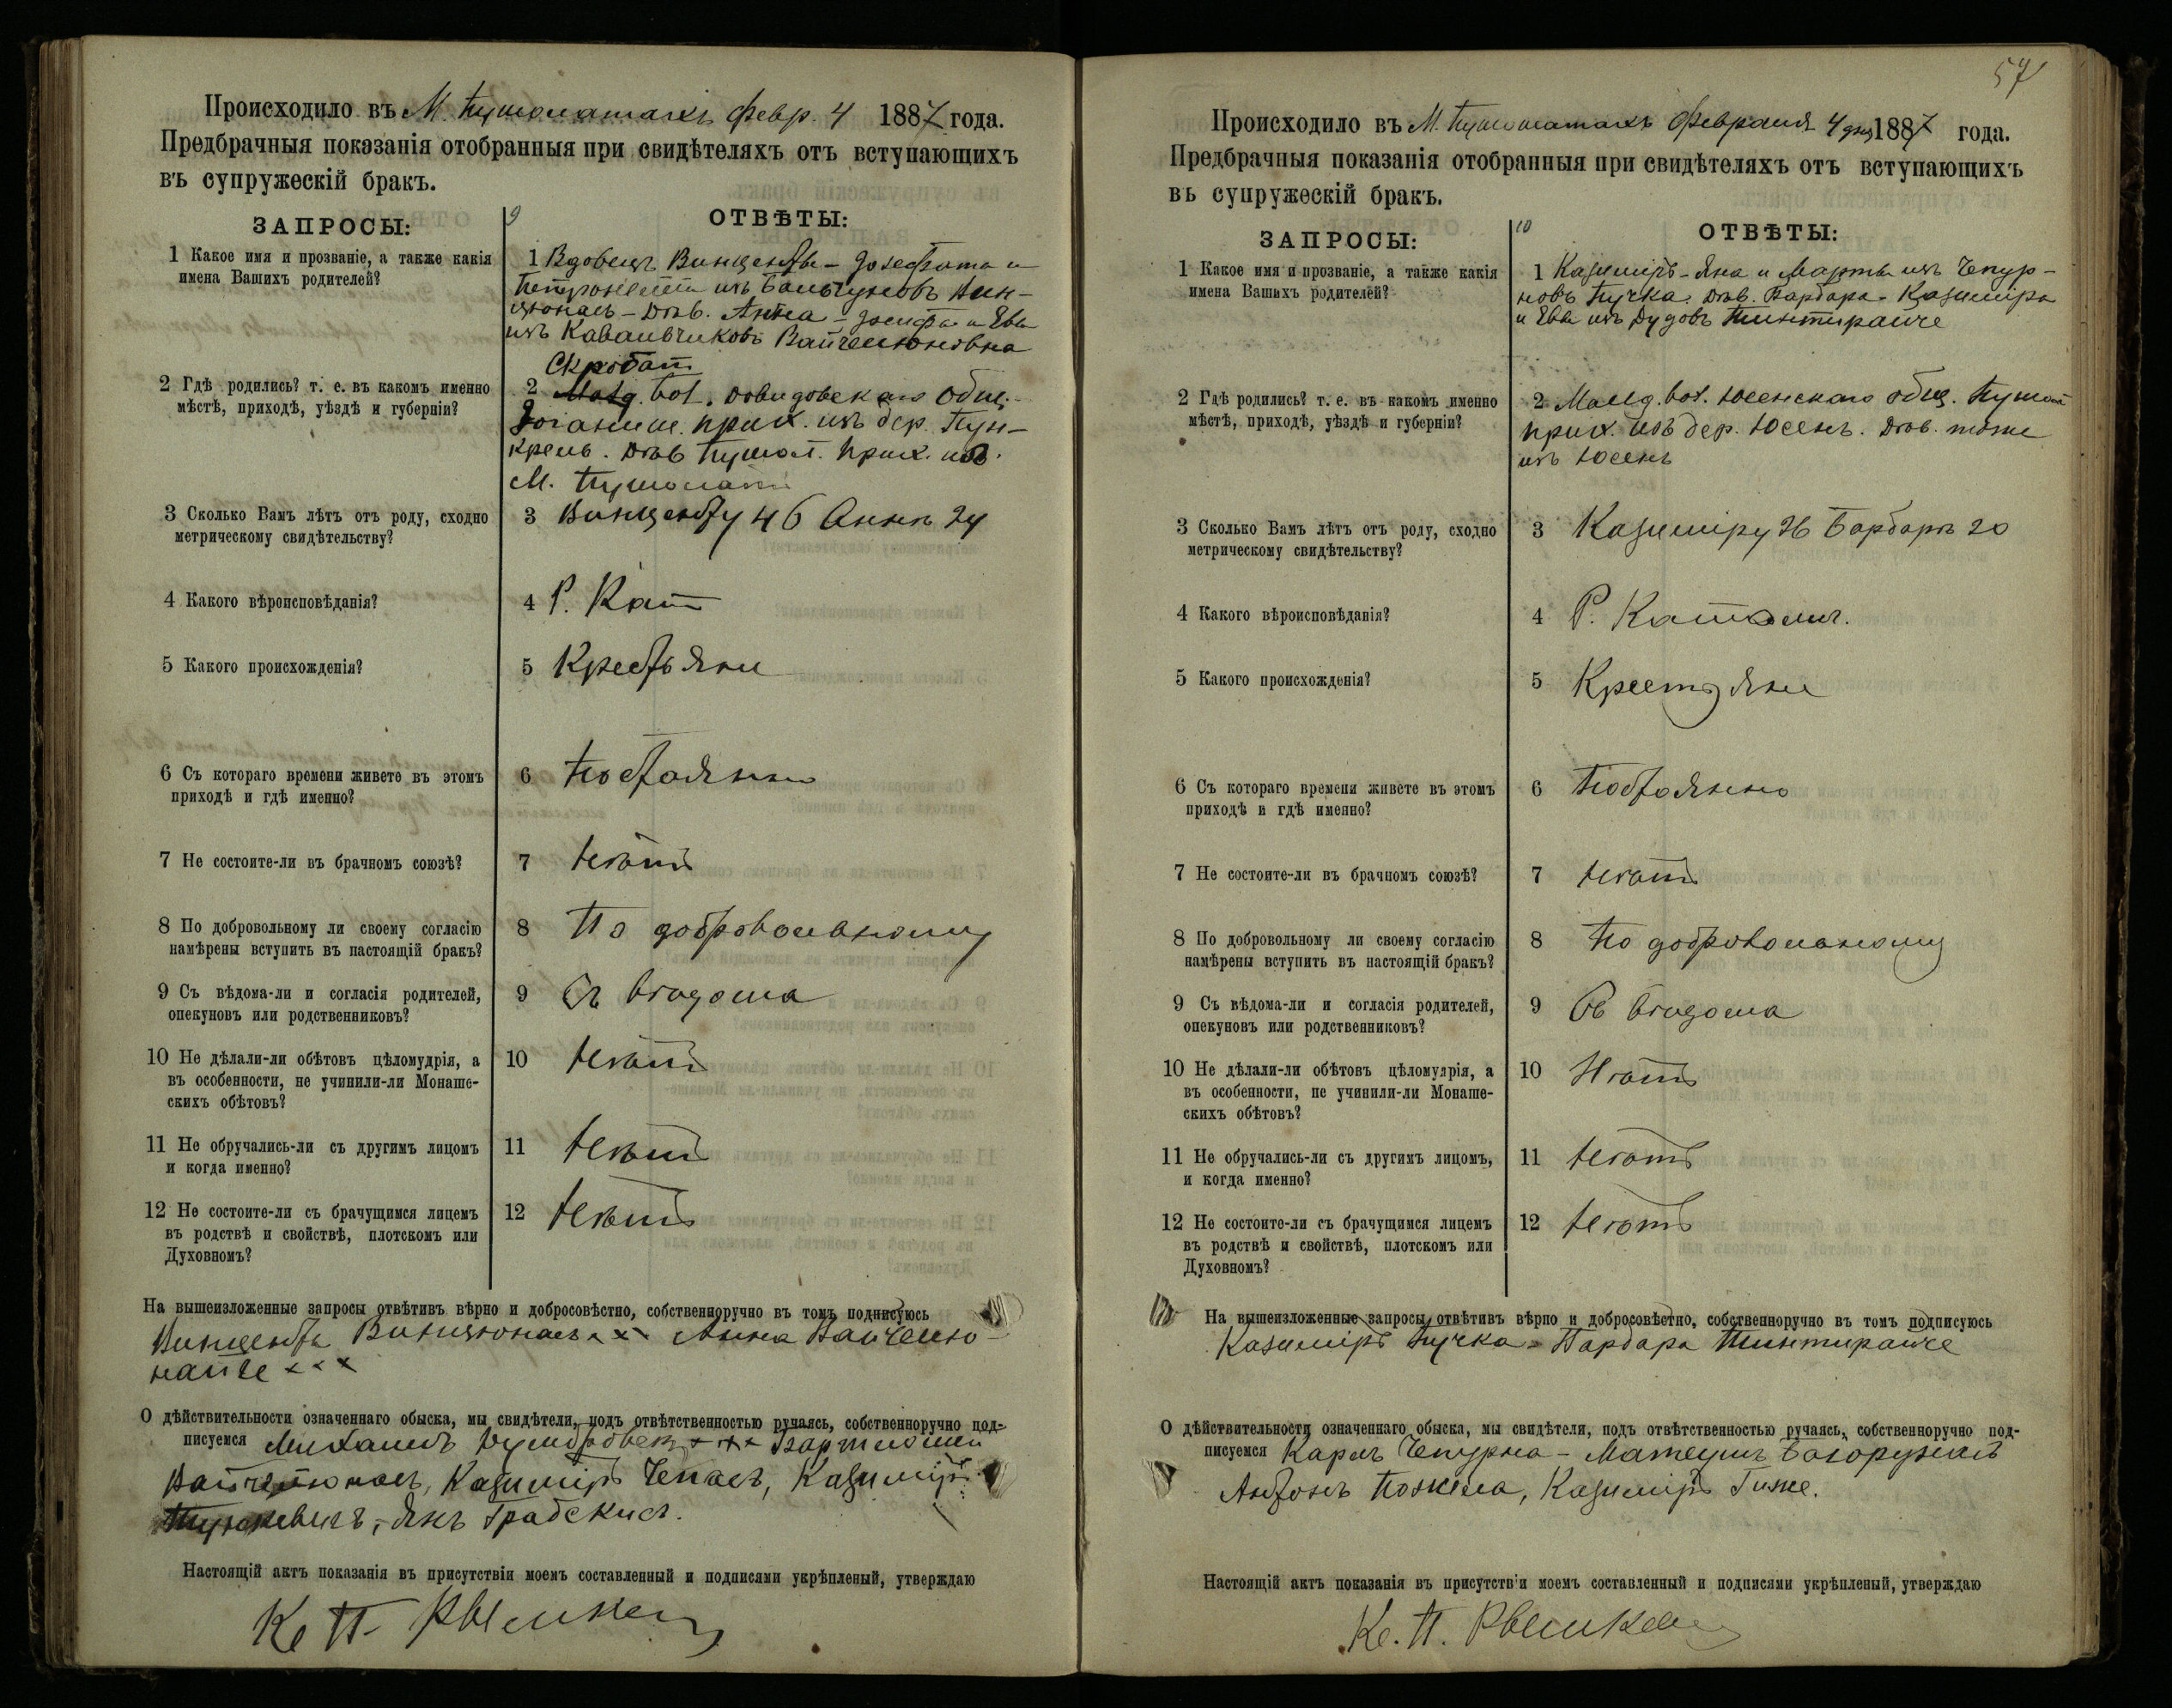 Происходило въ М. Пушолатахъ февр. 4 1887 года.
Предбрачныя показанія отобранныя при свидѣтеляхъ отъ вступающихъ
въ супружескій бракъ.
ЗАПРОСЫ:
9
ОТВѢТЫ:
1 Какое имя и прозваніе, а также какія
имена Вашихъ родителей?
1 Вдовецъ Винцентъ – Іозефата и
Петронелли изъ Бальчуновъ Вин–
цюнасъ – Дѣв. Анна – Іосифа и Евы
изъ Ковальчиковъ Вайчелюновна
2 Гдѣ родились? т. е. въ какомъ именно
мѣстѣ, приходѣ, уѣздѣ и губерніи?
Скробот
2 вол. Довидовскаго общ.
прих. изъ дер. Пун–
. Дѣв. Пушол. прих. изъ
М. Пушолатъ
3 Сколько Вамъ лѣтъ отъ роду, сходно
метрическому свидѣтельству?
3 Винценту 46 Аннѣ 24
4 Какого вѣроисповѣданія?
4 Р. Кат
5 Какого происхожденія?
5 Крестьяне
6 Съ котораго времени живете въ этомъ
приходѣ и гдѣ именно?
6 Постоянно
7 Не состоите-ли въ брачномъ союзѣ?
7 Нѣтъ
8 По добровольному ли своему согласію
намѣрены вступить въ настоящій бракъ?
8 По добровольному
9 Съ вѣдома-ли и согласія родителей,
опекуновъ или родственниковъ?
9 Съ вѣдома
10 Не дѣлали-ли обѣтовъ цѣломудрія, а
въ особенности, не учинили-ли Монаше-
скихъ обѣтовъ?
10 Нѣтъ
11 Не обручались-ли съ другимъ лицомъ
и когда именно?
11 Нѣтъ
12 Не состоите-ли съ брачущимся лицемъ
въ родствѣ и свойствѣ, плотскомъ или
Духовномъ?
12 Нѣтъ
На вышеизложенные запросы отвѣтивъ вѣрно и добросовѣстно, собственноручно въ томъ подписуюсь
Винцентъ Винцюнасъ × × Анна Вайчелю–
найте × × ×
О дѣйствительности означеннаго обыска, мы свидѣтели, подъ отвѣтственностью ручаясь, собственноручно под-
писуемся Михаилъ × × × Бартломей
Вайчелюнасъ, Казиміръ Чепасъ, Казиміръ
, Янъ Грабскисъ.
Настоящій актъ показанія въ присутствіи моемъ составленный и подписями укрѣпленый, утверждаю
Кс. П.
57
Происходило въ М. Пушолатахъ Февраля 4 дня 1887 года.
Предбрачныя показанія отобранныя при свидѣтеляхъ отъ вступающихъ
въ супружескій бракъ.
ЗАПРОСЫ:
10
ОТВѢТЫ:
1 Какое имя и прозваніе, а также какія
имена Вашихъ родителей?
1 Казиміръ – Яна и Марты изъ Чепур–
новъ Пучка. Дѣв. Барбара – Казиміра
и Евы изъ Дудовъ Тинтирайте
2 Гдѣ родились? т. е. въ какомъ именно
мѣстѣ, приходѣ, уѣздѣ и губерніи?
2 вол. Юсенскаго общ. Пушол
прих. изъ дер. Юсень. Дѣв. тоже
изъ Юсень
3 Сколько Вамъ лѣтъ отъ роду, сходно
метрическому свидѣтельству?
3 Казиміру 26 Барбарѣ 20
4 Какого вѣроисповѣданія?
4 Р. Католич.
5 Какого происхожденія?
5 Крестьяне
6 Съ котораго времени живете въ этомъ
приходѣ и гдѣ именно?
6 Постоянно
7 Не состоите-ли въ брачномъ союзѣ?
7 Нѣтъ
8 По добровольному ли своему согласію
намѣрены вступить въ настоящій бракъ?
8 По добровольному
9 Съ вѣдома-ли и согласія родителей,
опекуновъ или родственниковъ?
9 Съ вѣдома
10 Не дѣлали-ли обѣтовъ цѣломудрія, а
въ особенности, не учинили-ли Монаше-
скихъ обѣтовъ?
10 Нѣтъ
11 Не обручались-ли съ другимъ лицомъ,
и когда именно?
11 Нѣтъ
12 Не состоите-ли съ брачущимся лицемъ
въ родствѣ и свойствѣ, плотскомъ или
Духовномъ?
12 Нѣтъ
На вышеизложенные запросы отвѣтивъ вѣрно и добросовѣстно, собственноручно въ томъ подписуюсь
Казиміръ Пучка – Барбара Тинтирайте
О дѣйствительности означеннаго обыска, мы свидѣтели, подъ отвѣтственностью ручаясь, собственноручно под-
писуемся Карлъ Чепурна – Матеушъ
Антонъ Пожела, Казиміръ Гиже.
Настоящій актъ показанія въ присутствіи моемъ составленный и подписями укрѣпленый, утверждаю
Кс. П.